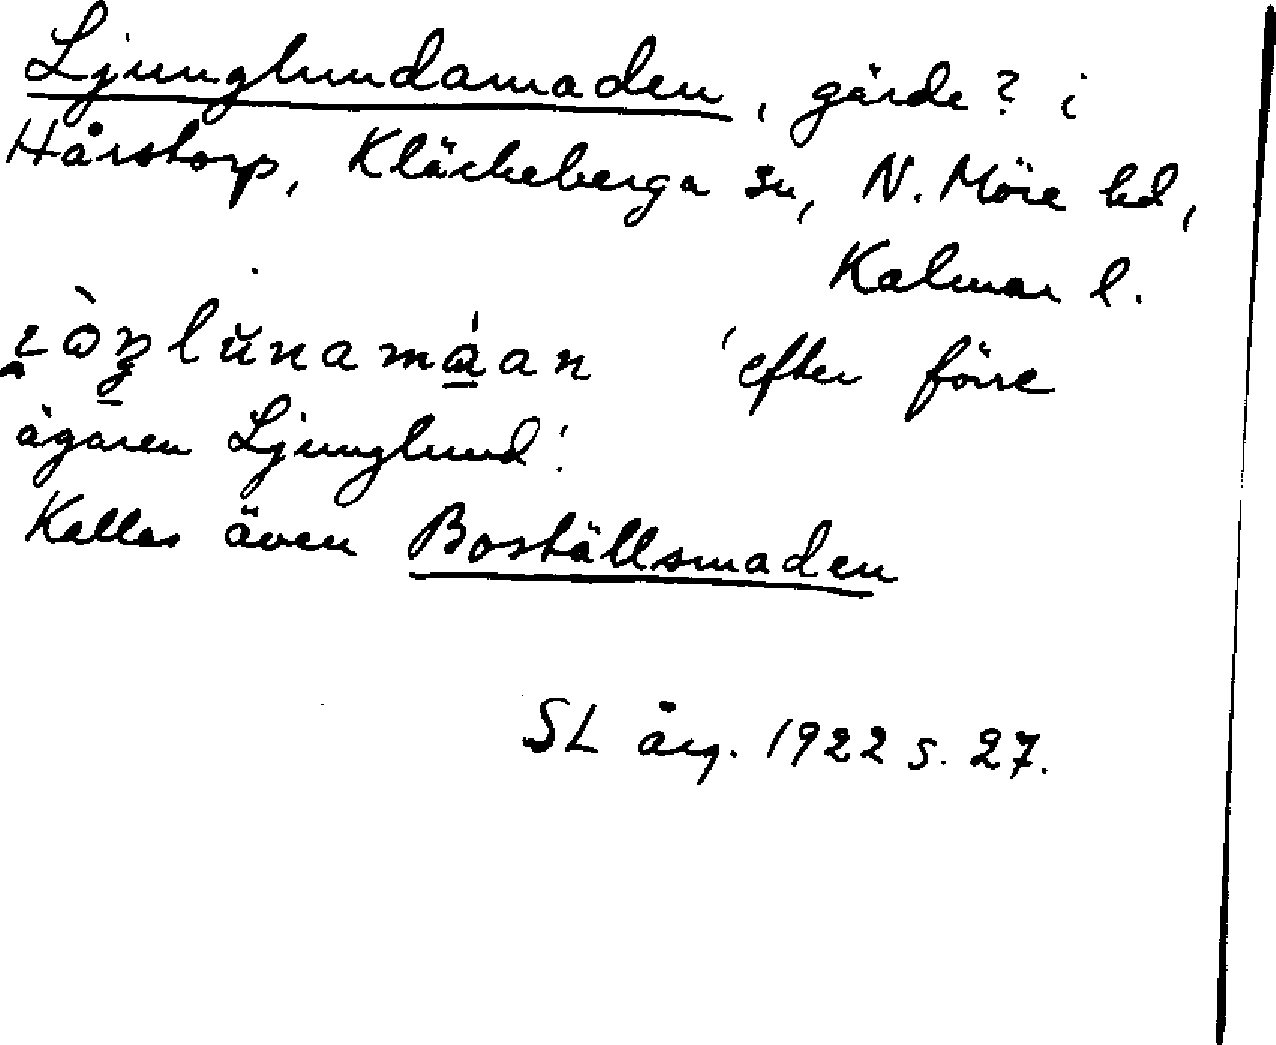 Ljunglundamaden, gärde? i
Hårstorp, Kläckeberga sn, N. Möre hd,
Kalmar l.
'efter förre
ägaren Ljunglund'.
Kallas även Boställsmaden
SL årg. 1922 s. 27.